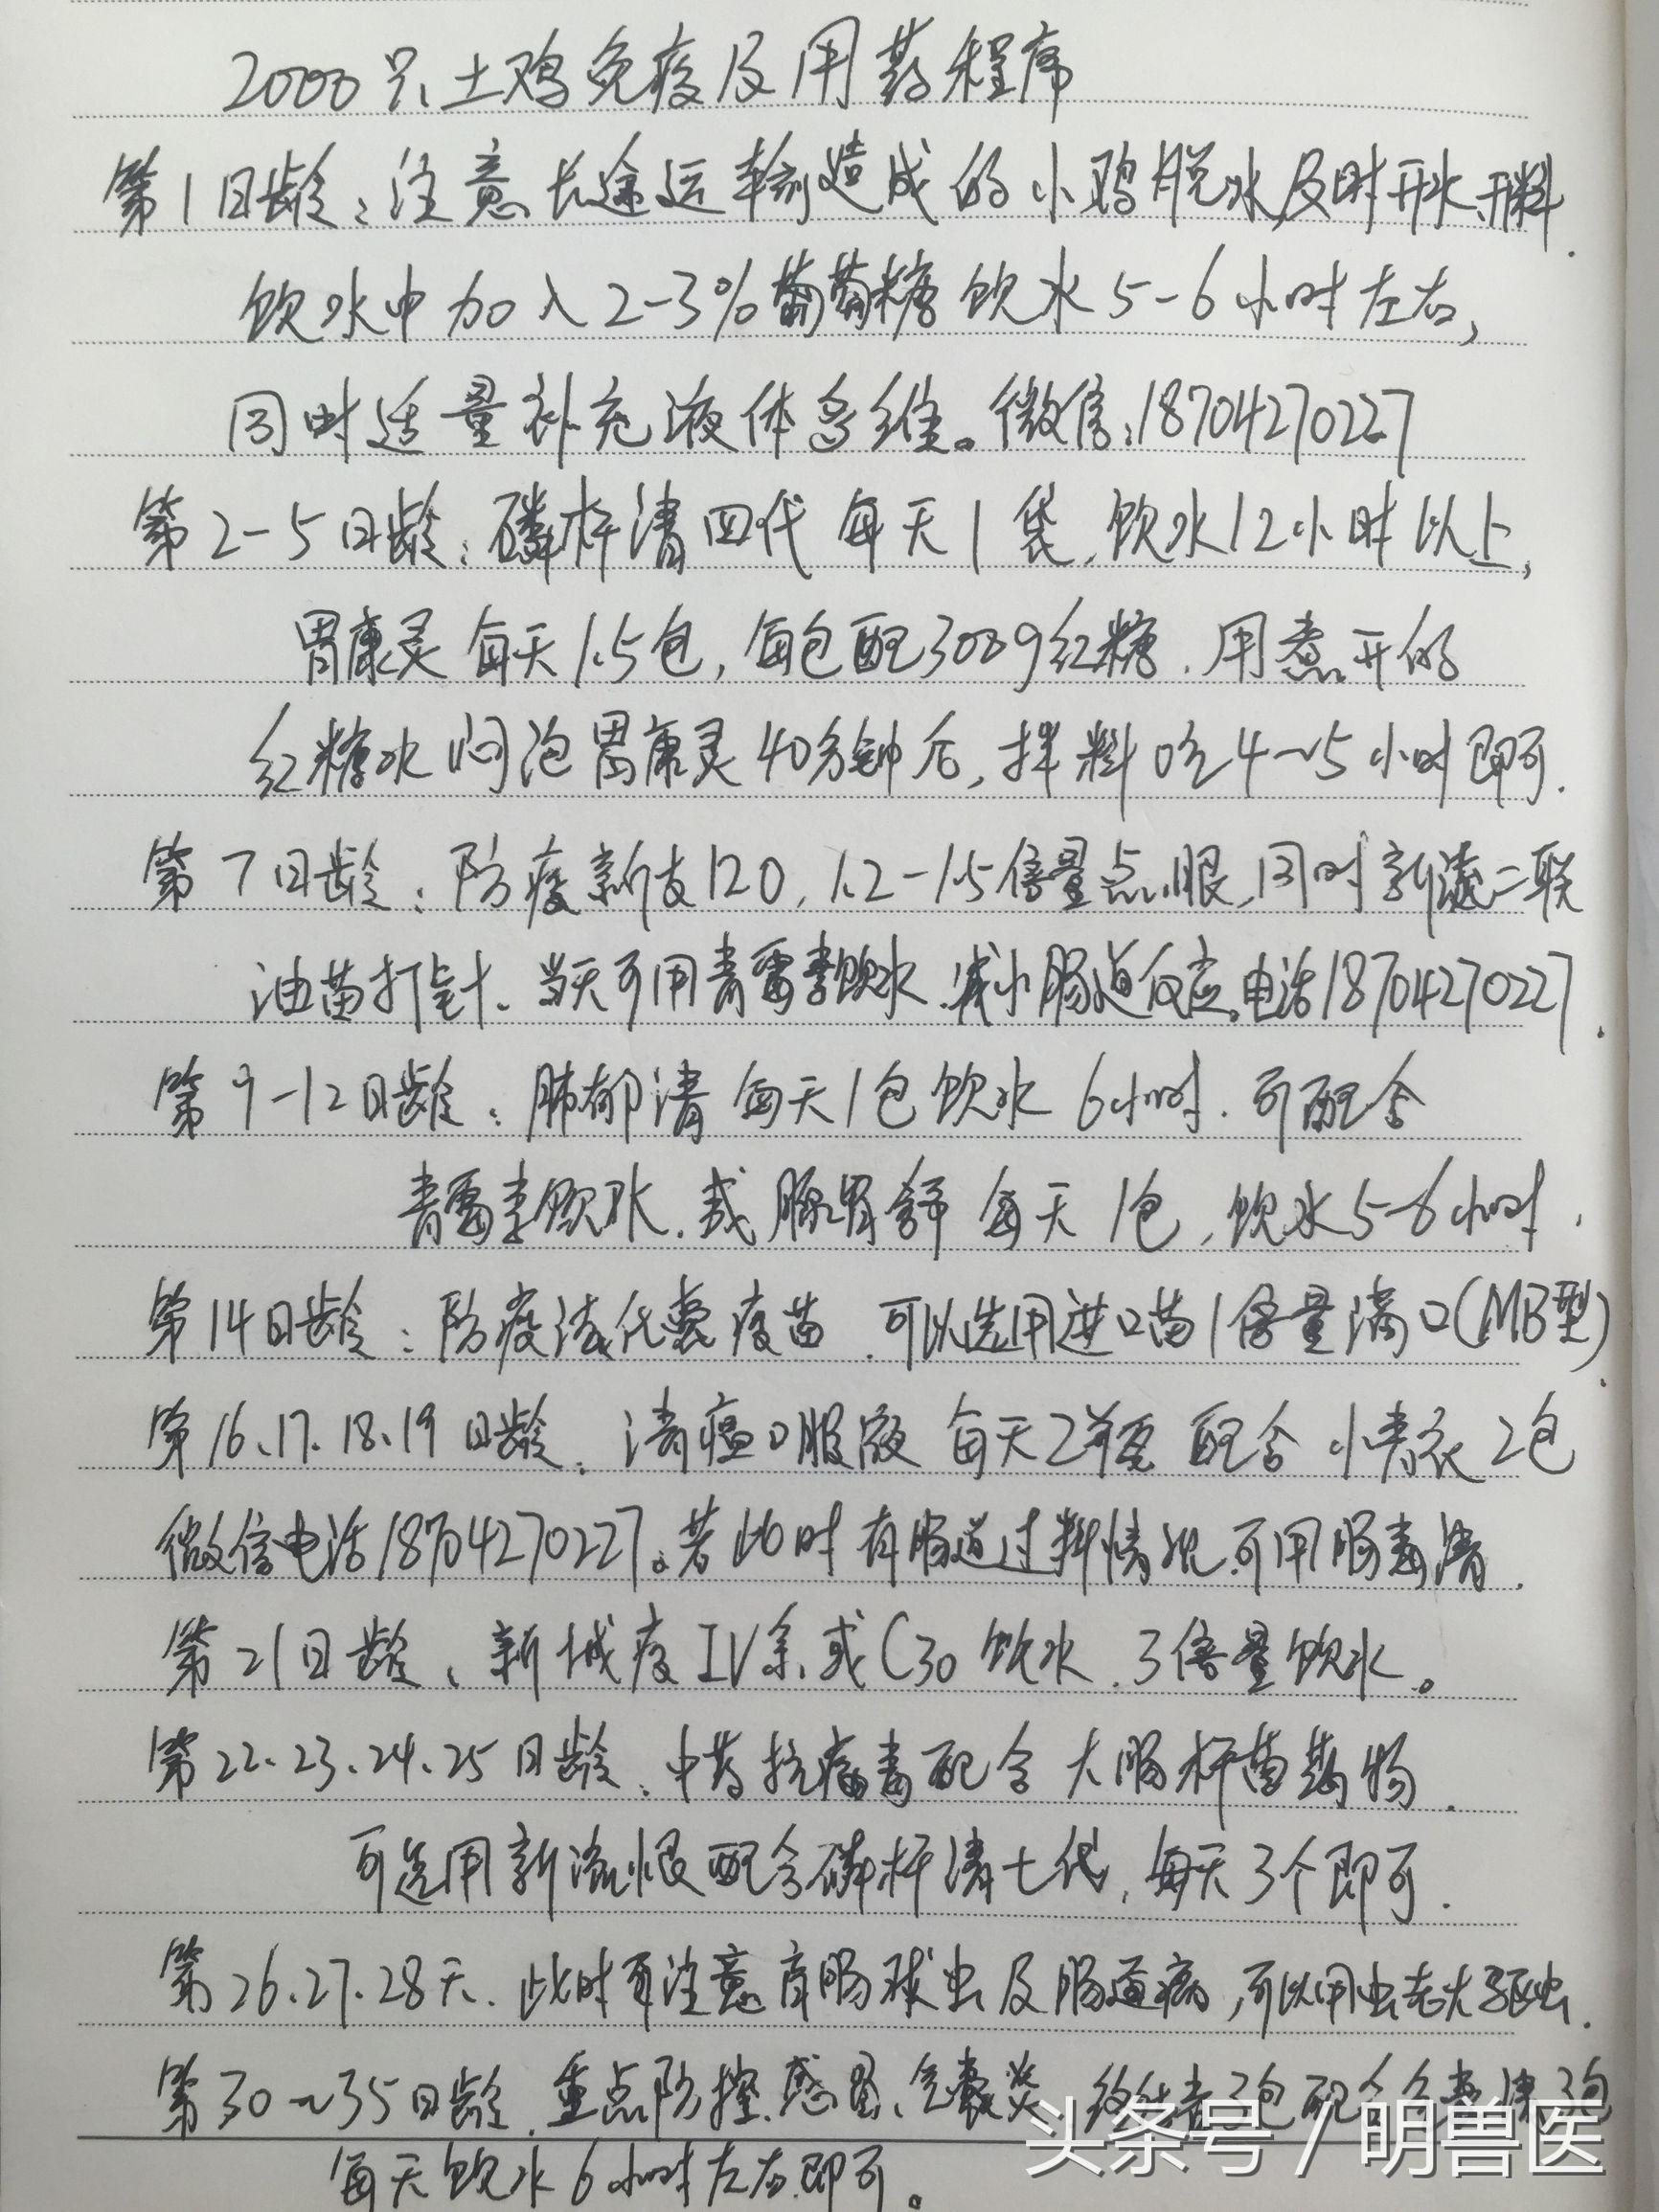 2000只土鸡免疫及用药程序
第1日龄:注意长途运输造成的小鸡脱水,及时开水、开料.
饮水中加入2-3%葡萄糖饮水5-6小时左右,
同时适量补充液体多维。微信:18704270227
第2-5日龄:磷杆清四代 每天1袋,饮水12小时以上,
胃康灵每天1.5包,每包配300g红糖.用煮开的
红糖水焖泡胃康灵40分钟后,拌料吃4~5小时即可.
第7日龄:防疫新支120,1.2-1.5倍量点眼,同时新流二联
油苗打针、当天可用青霉素饮水.减小肠道反应。电话18704270227.
第9-12日龄:肺郁清 每天1包饮水6小时.可配合
青霉素饮水.或腺胃舒 每天1包,饮水5-6小时.
第14日龄:防疫法氏囊疫苗.可以选用进口苗1倍量滴口(MB型).
第16、17、18、19日龄:清瘟口服液 每天2瓶 配合 小青衣2包
微信电话18704270227。若此时有肠道过料情况.可用肠毒清.
第21日龄、新城疫IV系或C30饮水.3倍量饮水。
第22、23、24、25日龄:中药抗病毒配合大肠杆菌药物.
可选用新流恨配合磷杆清七代,每天3个即可.
第26、27、28天、此时要注意盲肠球虫及肠道病,可以用虫
第30~35日龄.重点防控感冒、气囊炎.
头条号/明兽医
每天饮水6小时左右即可。